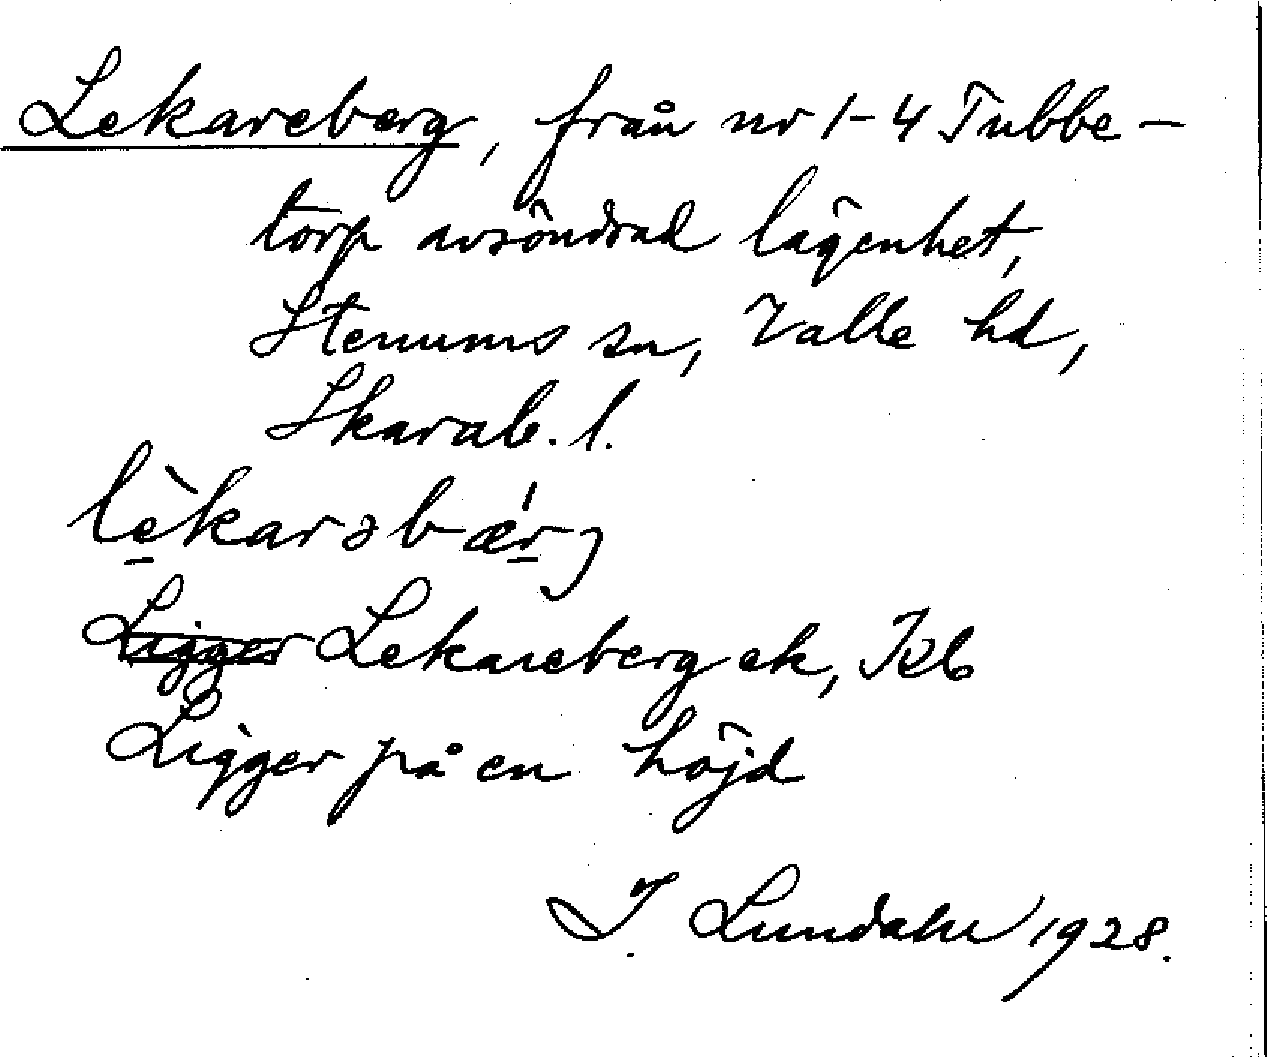 Lekareberg, från nr 1-4 Tubbe-
torp avsöndrad lägenhet,
Stenums sn, Valle hd,
Skarab. l.
lèkarəbǽrj
Ligger Lekareberg ek,
Ligger på en höjd
I. Lundahl 1928.